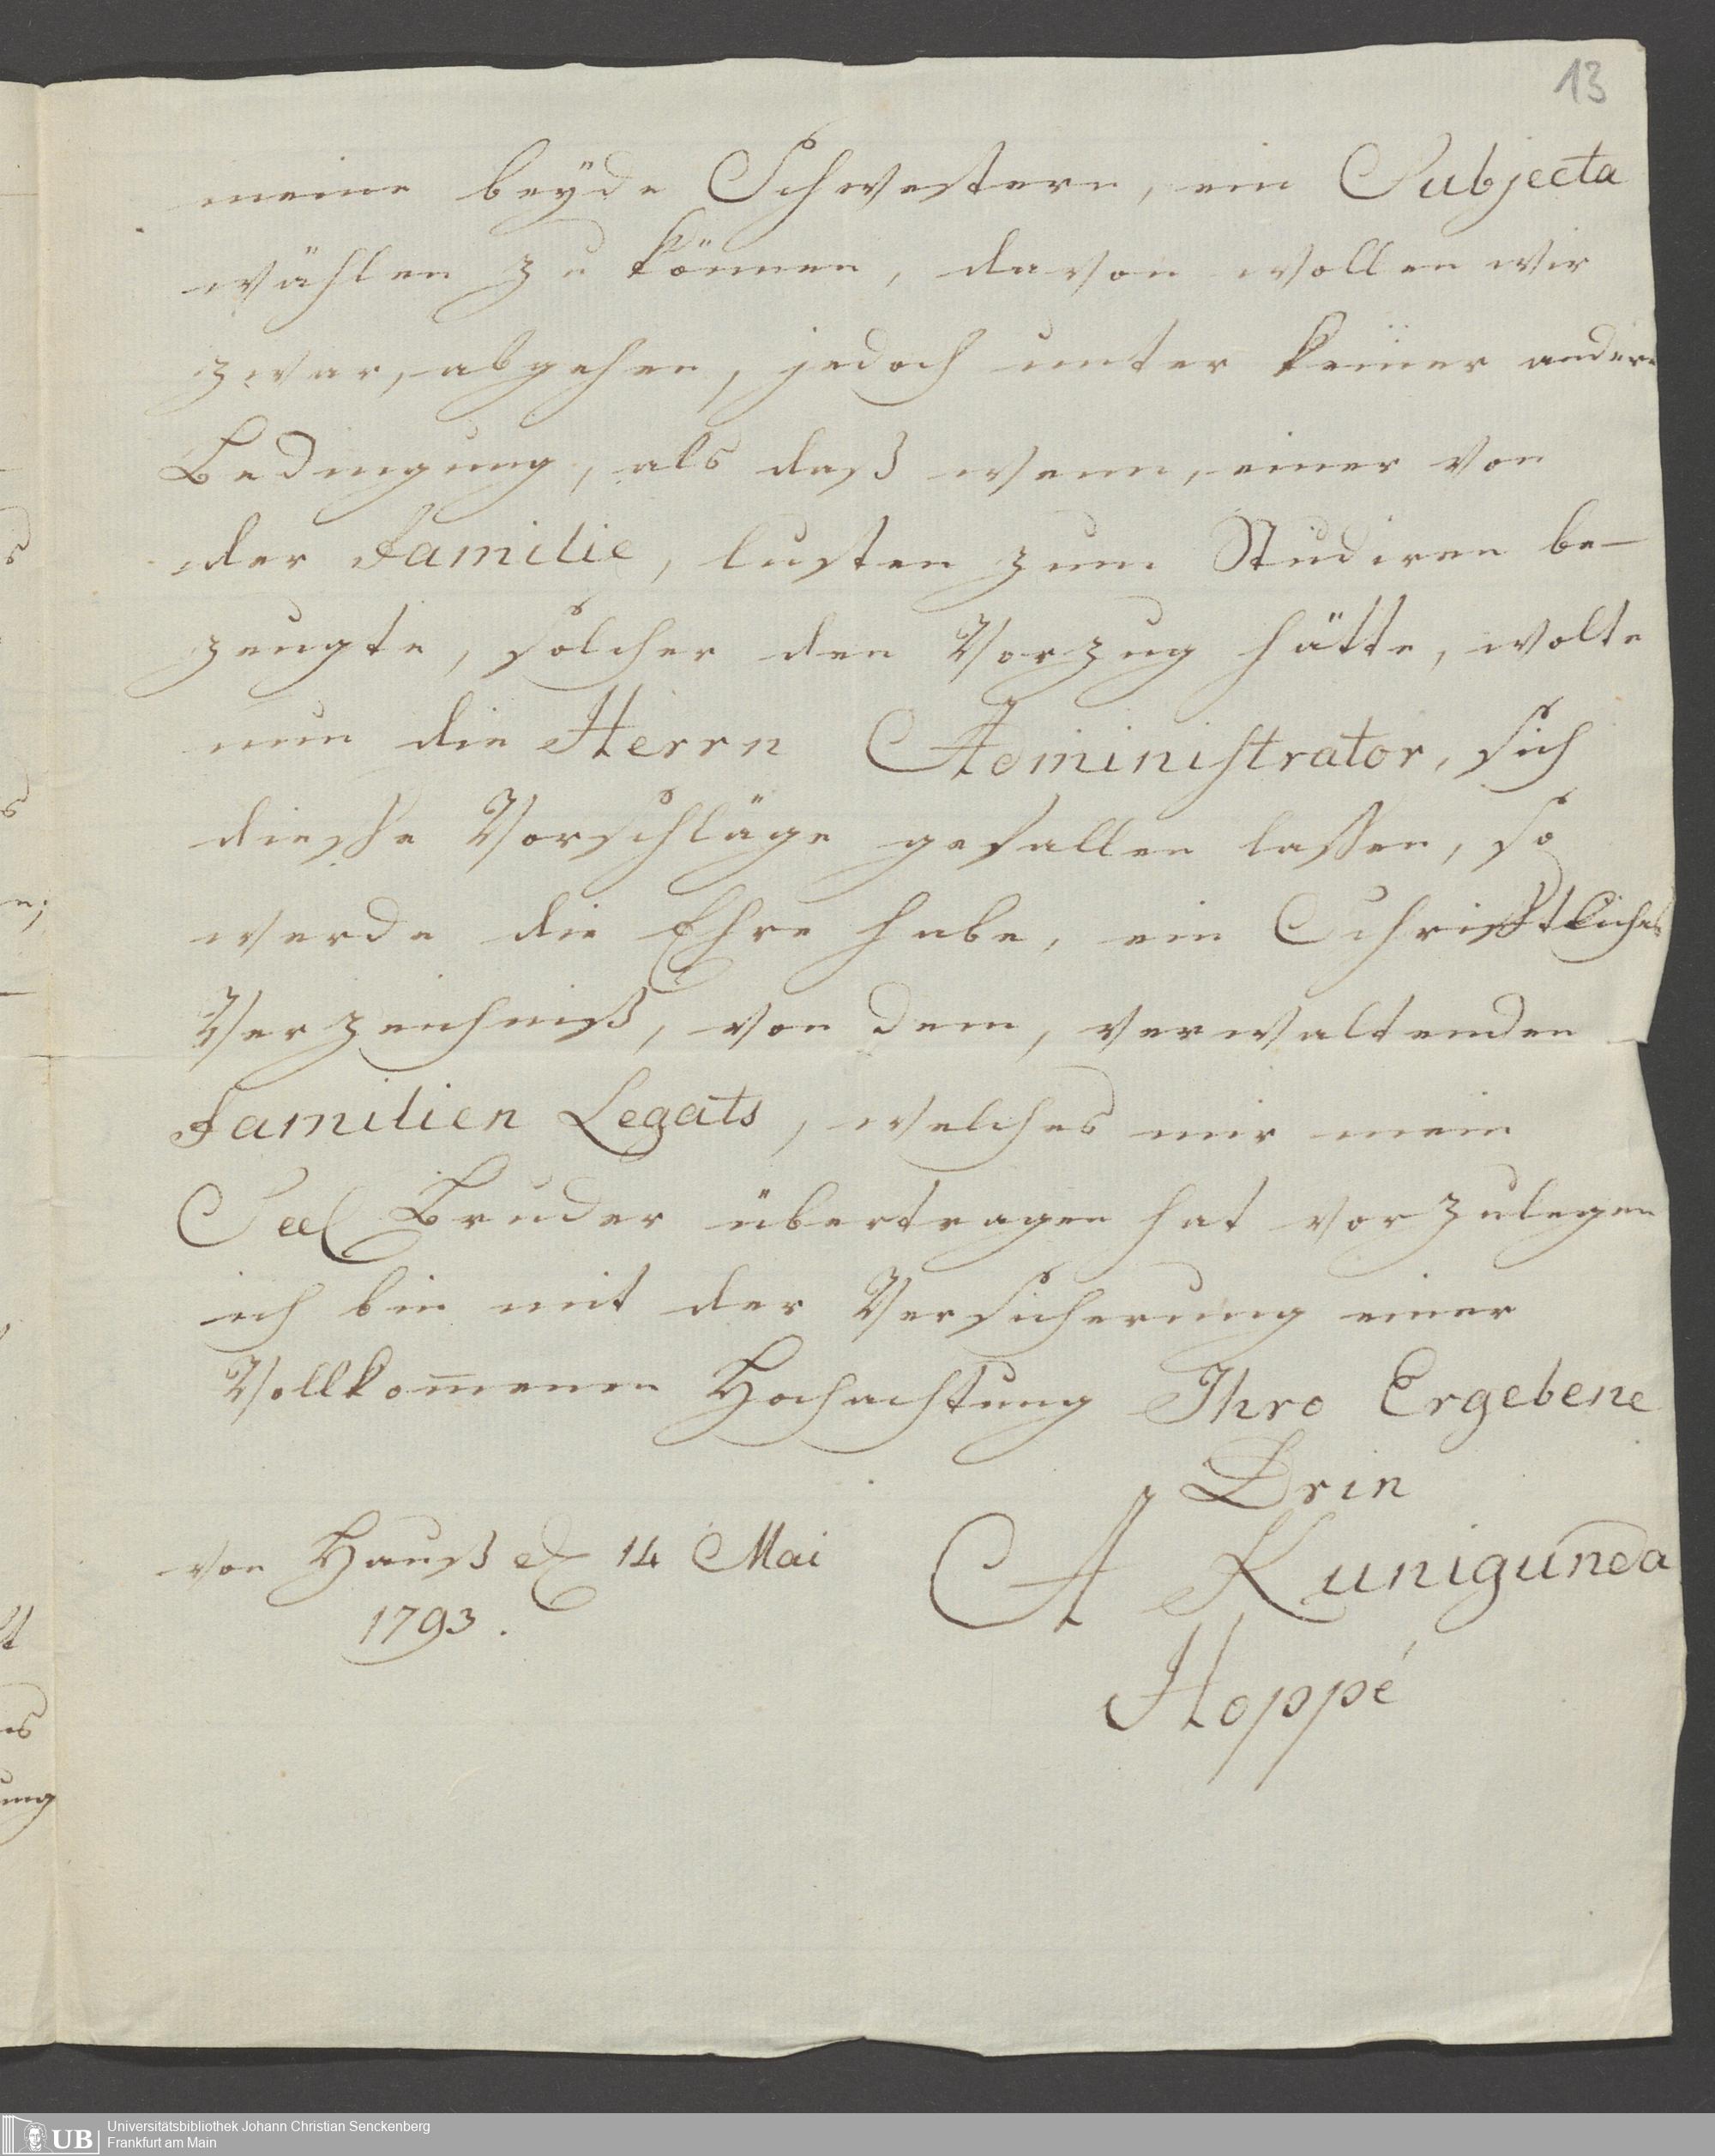 13
meine beyde Schwestern, ein Subjecta
wählen zu können, davon wollen wir
zwar, abgehen, jedoch unter keiner andern
Bedingung, als daß wenn, einer von
der Familie, lusten zum Studiren be-
zeugte, solcher den Vorzug hätte, wolte
nun die Herrn Administrator, sich
diesse Vorschläge gefallen lassen, so
werde die Ehre habe, ein Schrifftliches
Verzeichniß, von dem, verwaltenden
Familien Legats, welches mir mein
Seel Bruder übertragen hat vorzulegen
ich bin mit der Versicherung einer
Vollkom̅enen Hochachtung Ihro Ergebene
Drin
von Hauß d 14 Mai
1793.
A Kunigunda
Hoppé
UB Universitätsbibliothek Johann Christian Senckenberg
Frankfurt am Main